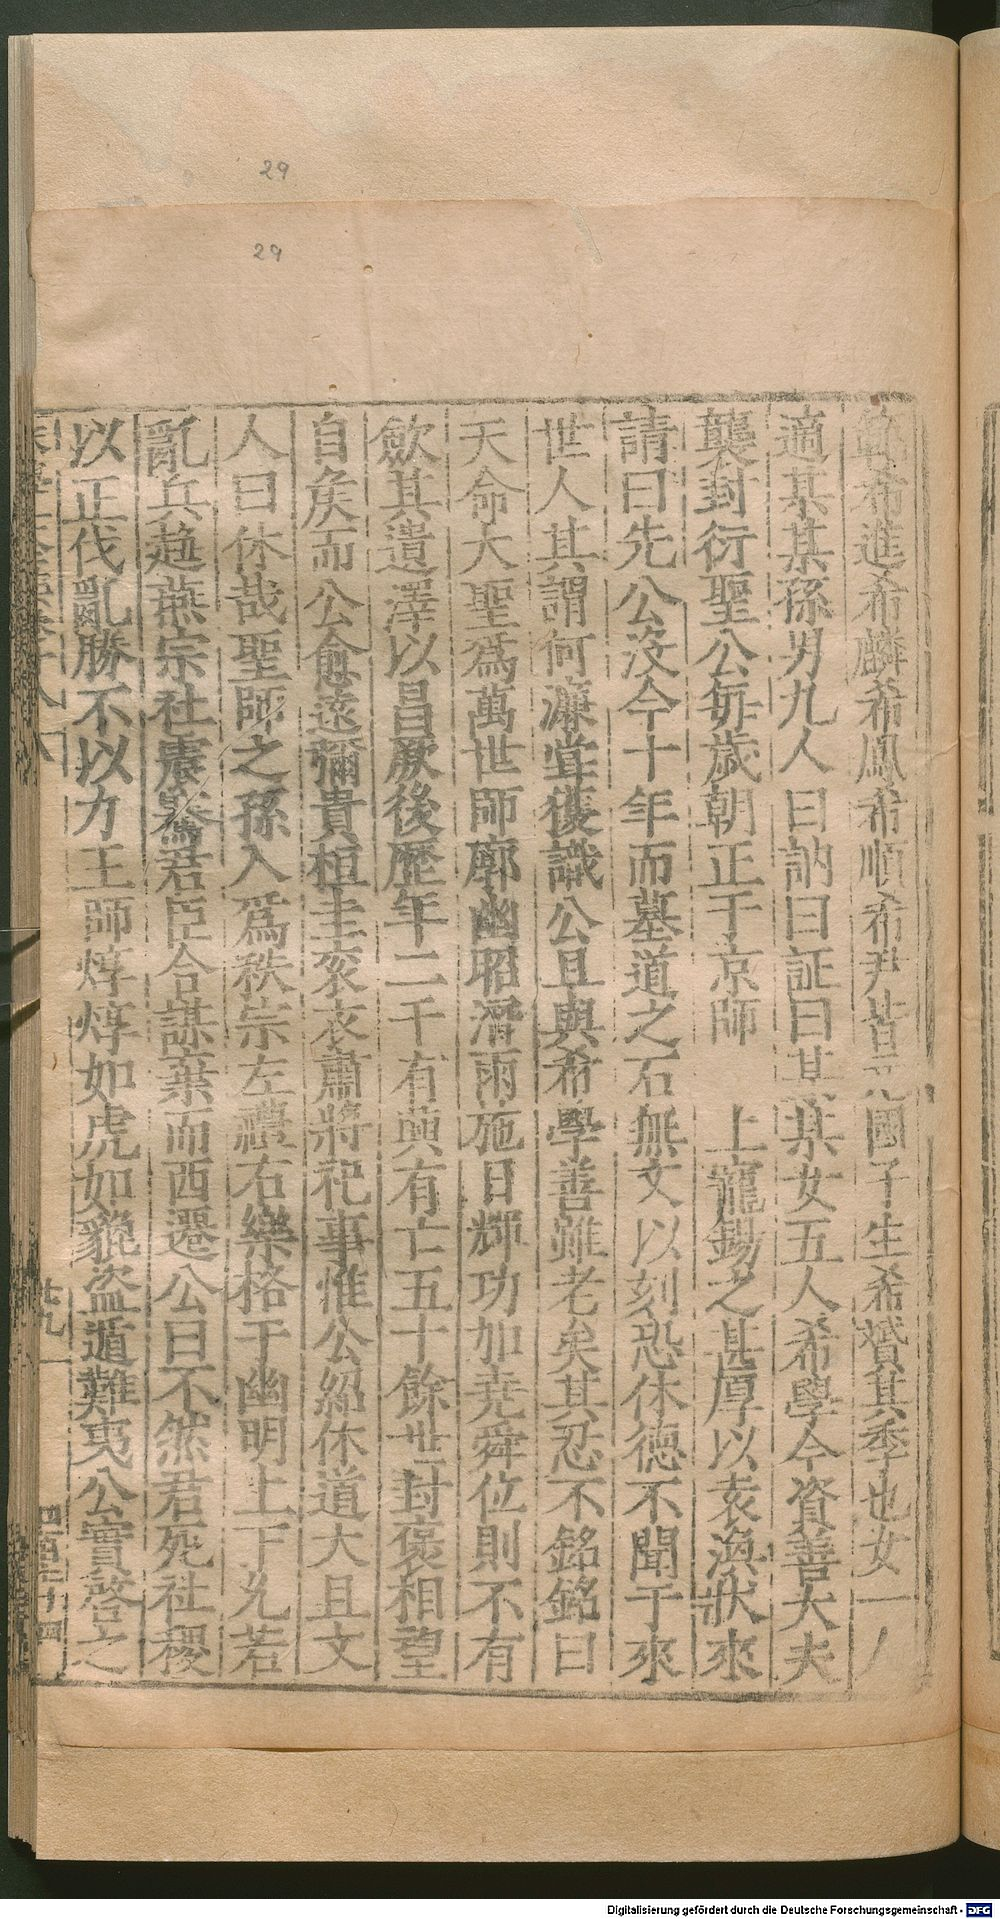 29
29
範希進希麟希鳳希順希尹皆三氏國子生希贇其季也女一人
適某某孫男九人曰訥曰証曰某某女五人希學今資善大夫
襲封衍聖公每歲朝正于京師 上寵錫之甚厚以袁渙狀來
請曰先公沒今十年而墓道之石無文以刻恐休德不聞于來
世人其謂何濂嘗獲識公且與希學善雖老矣其忍不銘銘曰
天命大聖爲萬世師廓幽昭潛雨施日輝功加堯舜位則不有
歛其遺澤以昌厥後歷年二千有興有亡五十餘世封褒相望
自矦而公愈遠彌貴桓圭袞衣肅將祀事惟公紹休道大且文
人曰休哉聖師之孫入爲秩宗左禮右樂格于幽明上下允若
亂兵趍燕宗社震驚君臣合謀棄而西遷公曰不然君死社稷
以正伐亂勝不以力王師焞焞如虎如貔盜遁難夷公實啓之
廿九
四百三十四
Digitalisierung gefördert durch die Deutsche Forschungsgemeinschaft - DFG